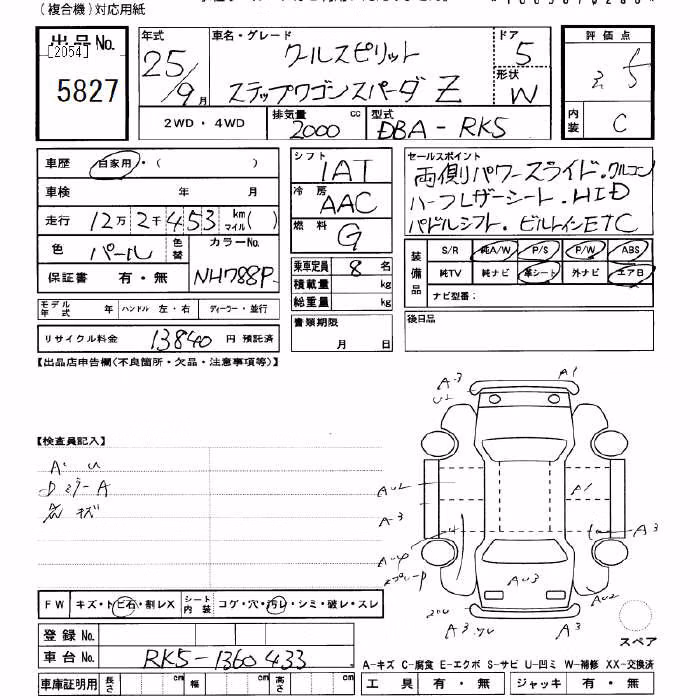 (複合機)対応用紙
出品No.
[2054]
5827
年式
25/9月
車名・グレード
クールスピリット
ステップワゴンスパーダ Z
ドア
5
形状
W
評価点
内装
C
2WD・4WD
排気量
2000 cc
型式
DBA-RK5
車歴 自家用・( )
車検 年 月
走行 12万2千453 km マイル( )
色 パール 色替 カラーNo. NH788P
保証書 有・無
モデル年式 年 ハンドル 左・右 ディーラー・並行
リサイクル料金 13840 円 預託済
シフト 1AT
冷房 AAC
燃料 G
乗車定員 8 名
積載量 kg
総重量 kg
書類期限 月 日
セールスポイント
両側パワースライド.クルコン
ハーフレザーシート.HID
パドルシフト.ビルトインETC
装備品
S/R 純A/W P/S P/W ABS
純TV 純ナビ 革シート 外ナビ エアB
ナビ型番:
後日品
【出品店申告欄(不良箇所・欠品・注意事項等)】
【検査員記入】
A・U
DミラーA
A3
U2
A1
AU2
A3
A1
A3
AU3
AU2
A3
FW キズ・トビ石・割レX シート内装 コゲ・穴・汚レ・シミ・破レ・スレ
登録No.
車台No. RK5-1360433
車庫証明用 長さ cm 幅 cm 高さ cm
スペア
A-キズ C-腐食 E-エクボ S-サビ U-凹ミ W-補修 XX-交換済
工具 有・無 ジャッキ 有・無